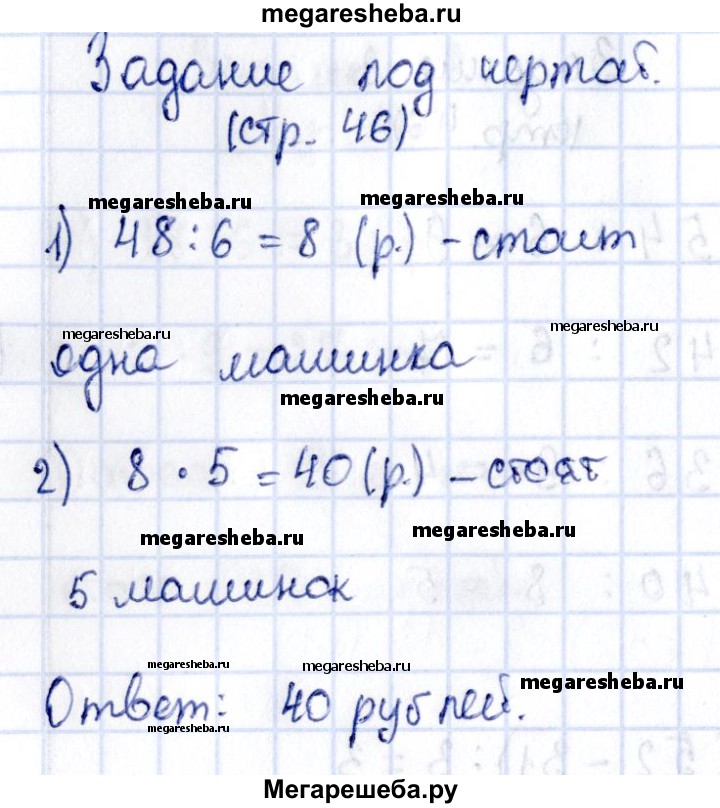 megaresheba.ru
Задание под чертой.
(стр. 46)
megaresheba.ru megaresheba.ru
1) 48:6=8 (р.) - стоит
megaresheba.ru megaresheba.ru
одна машинка
megaresheba.ru
2) 8·5=40(р.) - стоят
megaresheba.ru megaresheba.ru
5 машинок
megaresheba.ru megaresheba.ru megaresheba.ru
Ответ: 40 рублей.
megaresheba.ru
Мегарешеба.ру